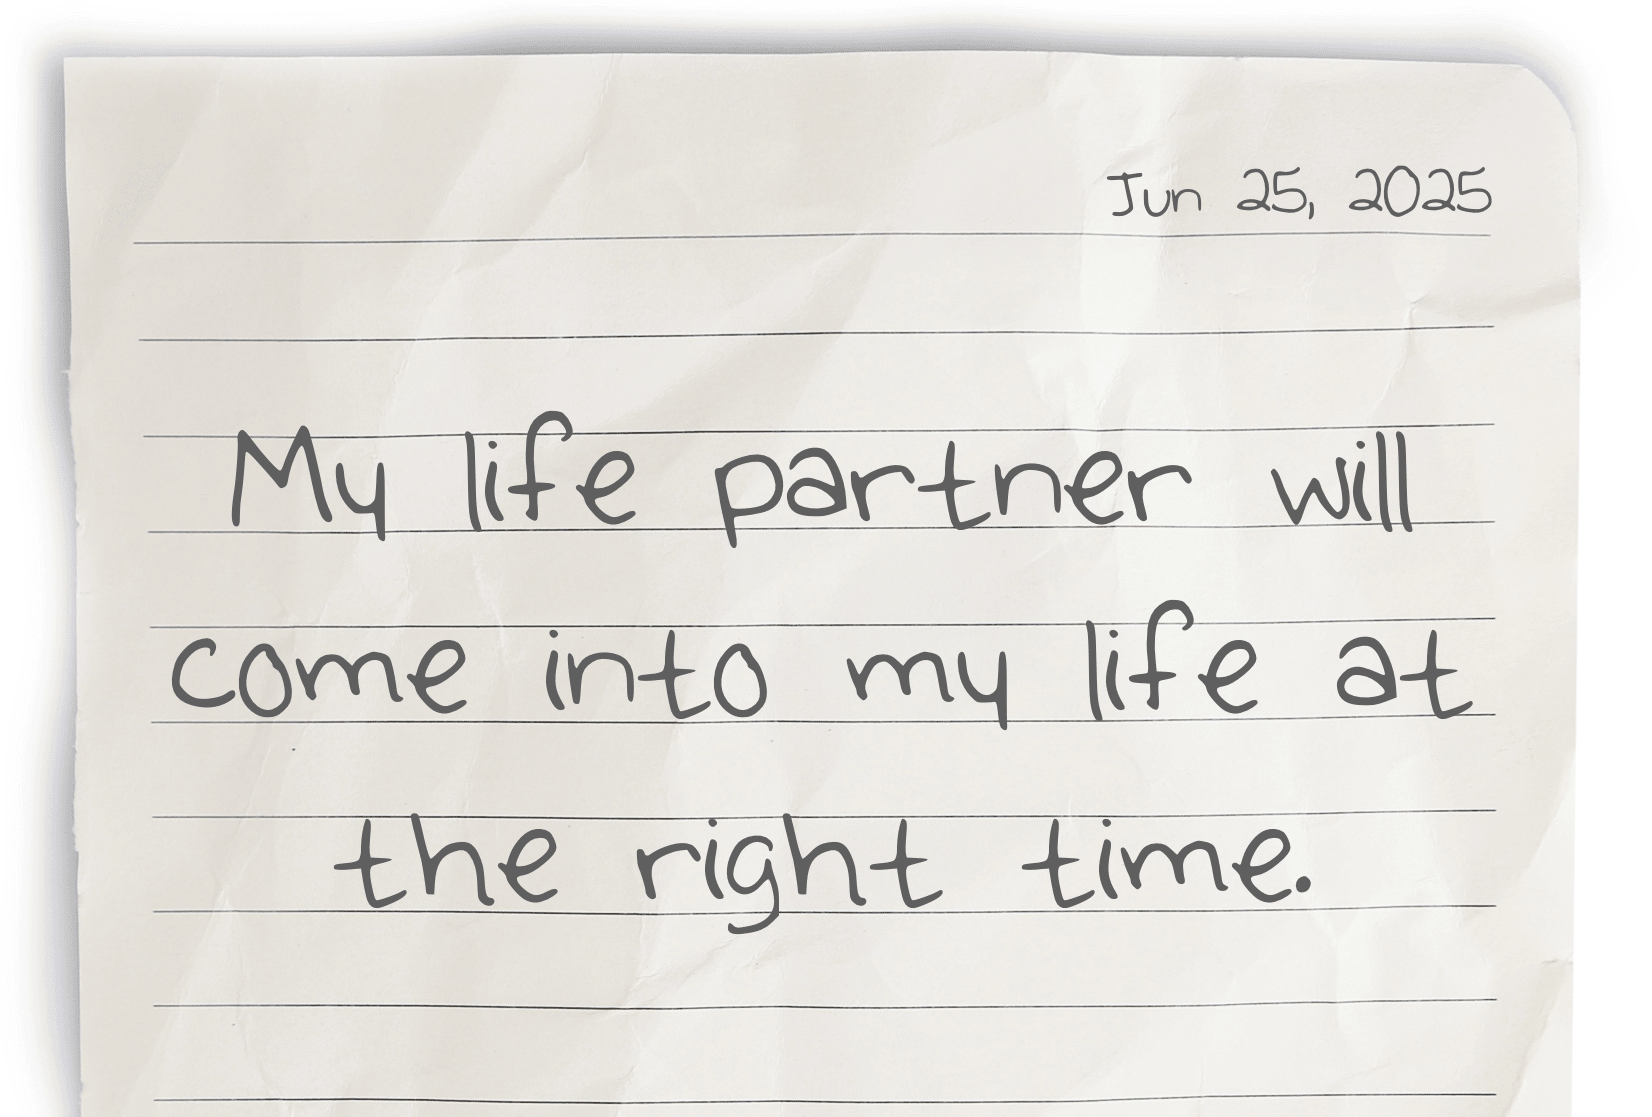 Jun 25, 2025
My life partner will
come into my life at
the right time.